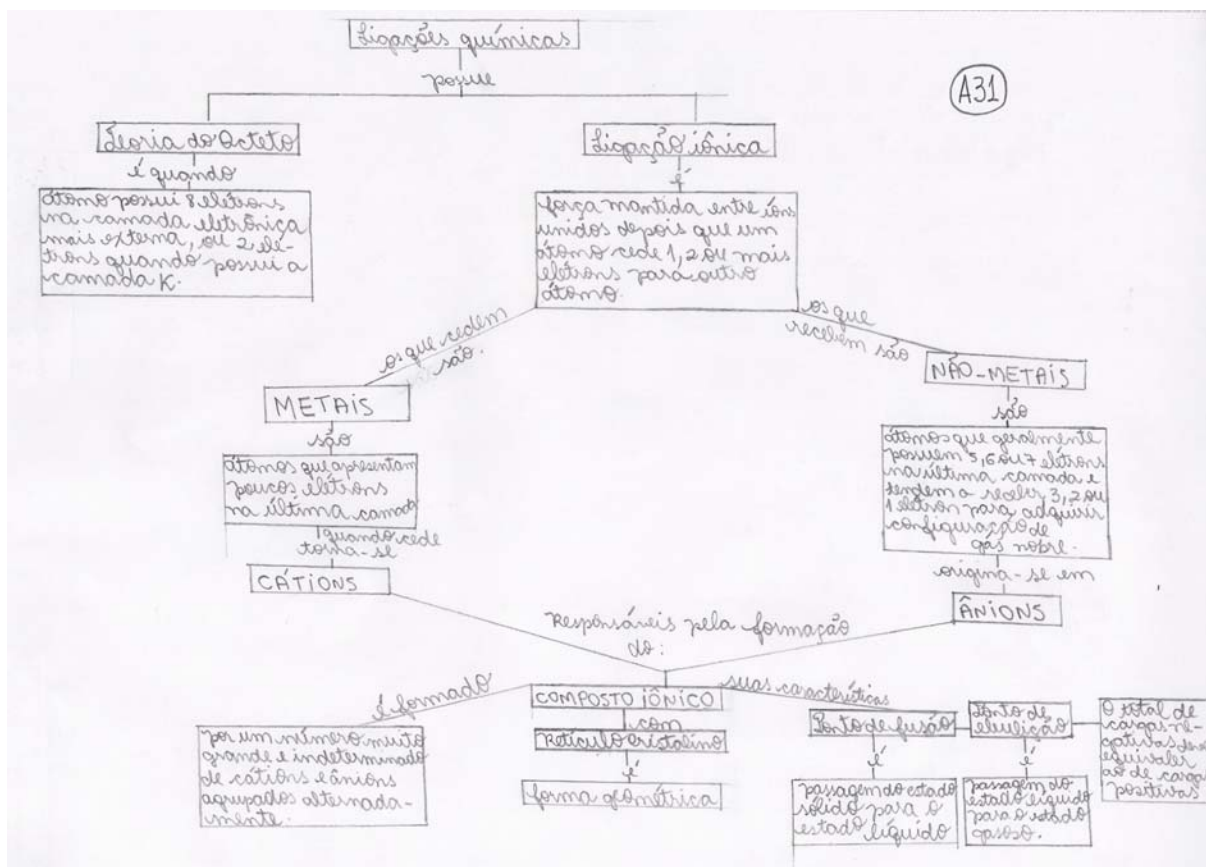 Ligações químicas
possue
A31
Teoria do Octeto
é quando
átomo possui 8 elétrons
na camada eletrônica
mais externa, ou 2 elé-
trons quando possui a
camada K.
Ligação iônica
é
força mantida entre íons
unidos depois que um
átomo cede 1, 2 ou mais
elétrons para outro
átomo.
os que cedem
são.
os que
recebem são
METAIS
são
átomos que apresentam
poucos elétrons
na última camada
quando cede
torna-se
CÁTIONS
NÃO-METAIS
são
átomos que geralmente
possuem 5, 6 ou 7 elétrons
na última camada e
tendem a receber 3, 2 ou
1 elétron para adquirir
configuração de
gás nobre.
origina-se em
ÂNIONS
Responsáveis pela formação
do:
COMPOSTO IÔNICO
é formado
por um número muito
grande e indeterminado
de cátions e ânions
agrupados alternada-
mente.
com
Retículo cristalino
é
forma geométrica
suas características
Ponto de fusão
é
passagem do estado
sólido para o
estado líquido
Ponto de
ebulição
é
passagem do
estado líquido
para o estado
gasoso.
O total de
cargas ne-
gativas deve
equivaler
ao de cargas
positivas